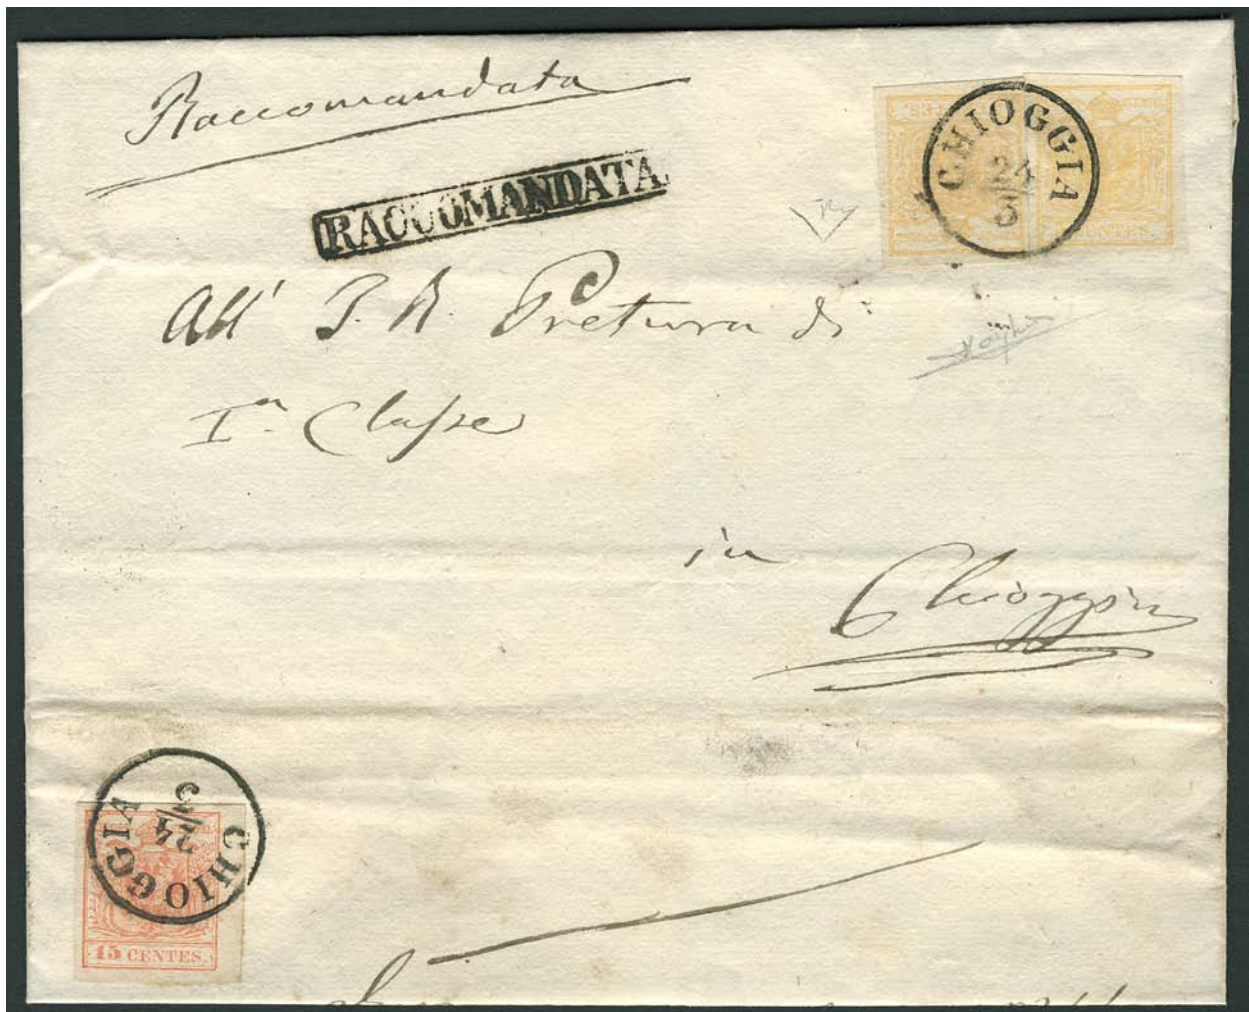 Raccomandata
RACCOMANDATA
CHIOGGIA
24
CENTES.
All' I. R. Pretura di
Iª Classe
in
Chioggia
CHIOGGIA
24
3
15 CENTES.